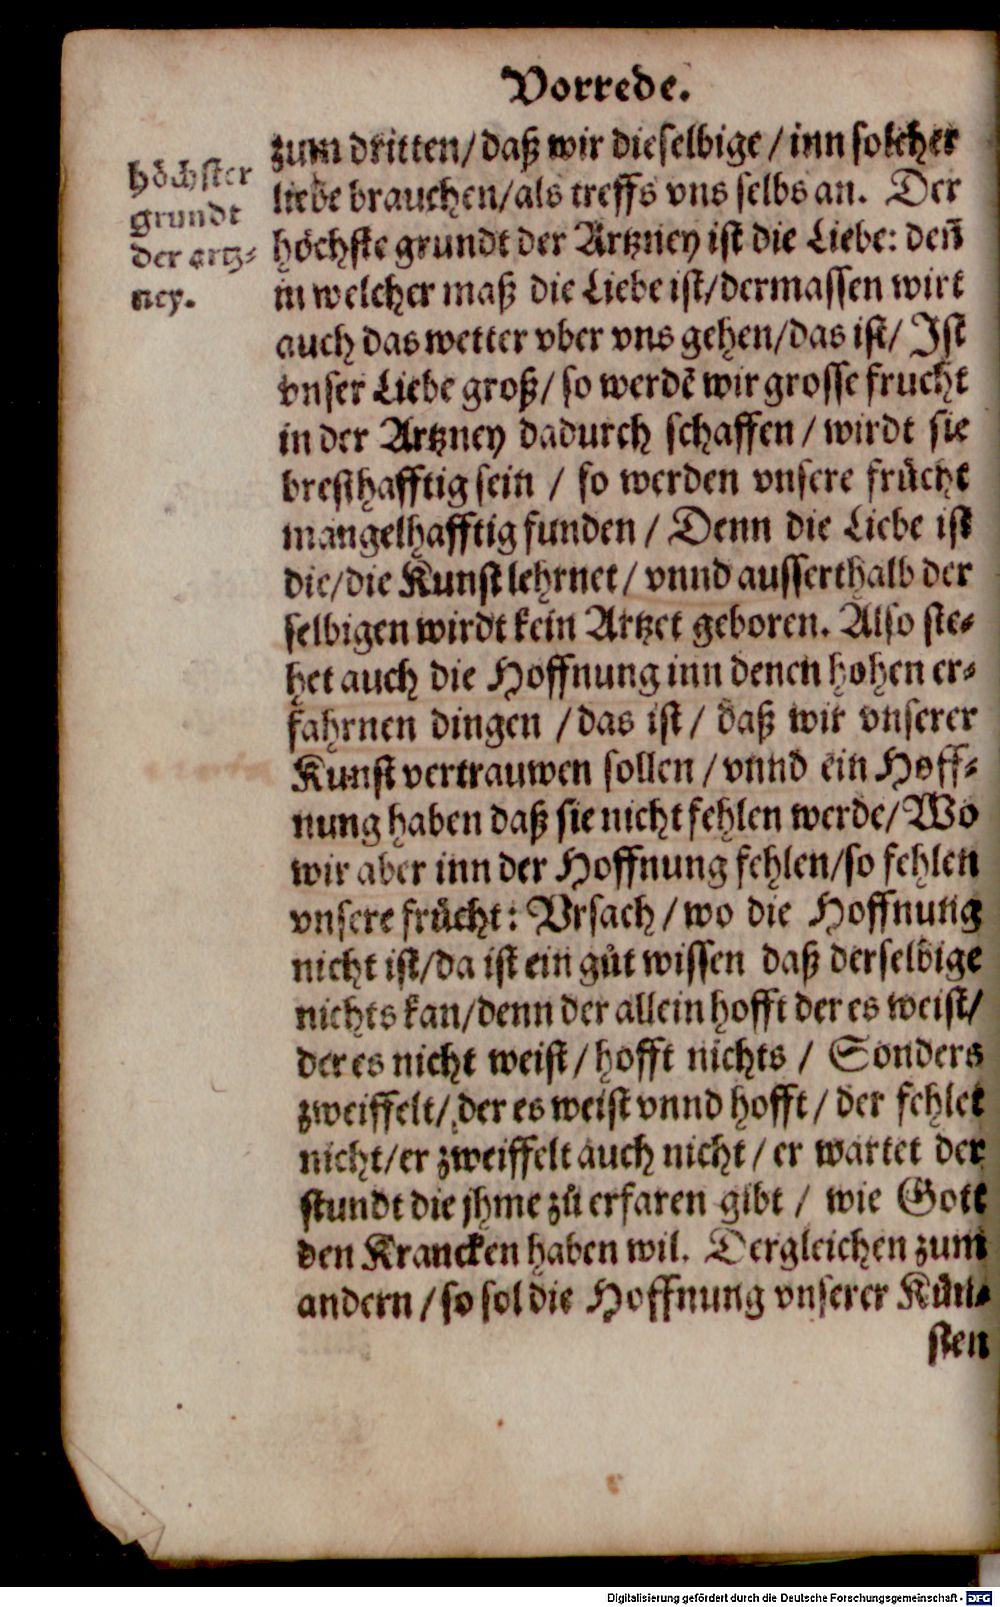 Vorrede.
höchster
grundt
der artz-
ney.
zum dritten/ daß wir dieselbige / inn solcher
liebe brauchen/als treffs vns selbs an. Der
höchste grundt der Artzney ist die Liebe: deñ
in welcher maß die Liebe ist/dermassen wirt
auch das wetter vber vns gehen/das ist/ Ist
vnser Liebe groß/ so werdẽ wir grosse frucht
in der Artzney dadurch schaffen / wirdt sie
bresthafftig sein / so werden vnsere frücht
mangelhafftig funden / Denn die Liebe ist
die/die Kunst lehrnet/ vnnd ausserthalb der
selbigen wirdt kein Artzet geboren. Also ste-
het auch die Hoffnung inn denen hohen er-
fahrnen dingen /das ist/ daß wir vnserer
Kunst vertrauwen sollen /vnnd ein Hoff-
nung haben daß sie nicht fehlen werde/ Wo
wir aber inn der Hoffnung fehlen/so fehlen
vnsere frücht: Vrsach / wo die Hoffnung
nicht ist/da ist ein gůt wissen daß derselbige
nichts kan/denn der allein hofft der es weist/
der es nicht weist/ hofft nichts / Sonders
zweiffelt/ der es weist vnnd hofft/ der fehlet
nicht/er zweiffelt auch nicht/ er wartet der
stundt die jhme zů erfaren gibt / wie Gott
den Krancken haben wil. Dergleichen zum
andern / so sol die Hoffnung vnserer Kün-
sten
Digitalisierung gefördert durch die Deutsche Forschungsgemeinschaft - DFG